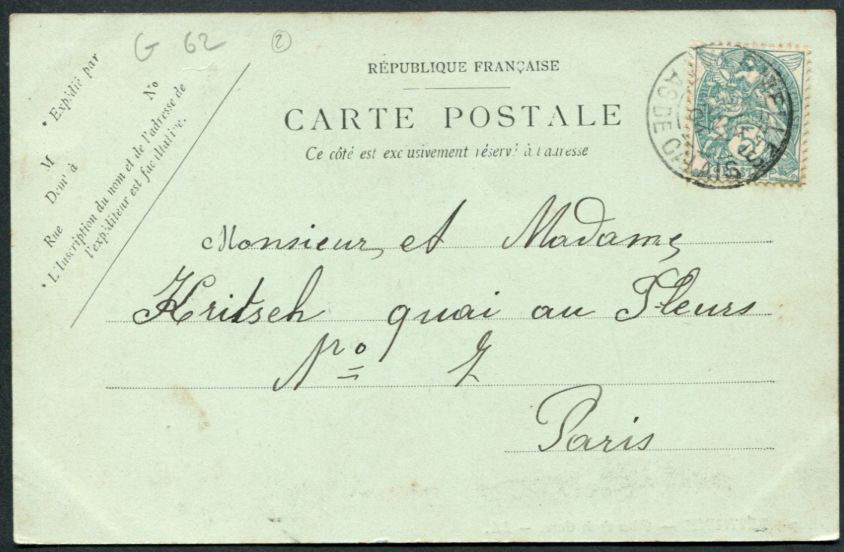 G 62 2
RÉPUBLIQUE FRANÇAISE
CARTE POSTALE
Ce côté est exclusivement réservé à l'adresse
* Expédié par
M
Demt à
Rue No
* L'Inscription du nom et de l'adresse de
l'expéditeur est facultative.
PAS DE CALAIS
Monsieur, et Madame,
Kritseh quai au Fleurs
No 7
Paris